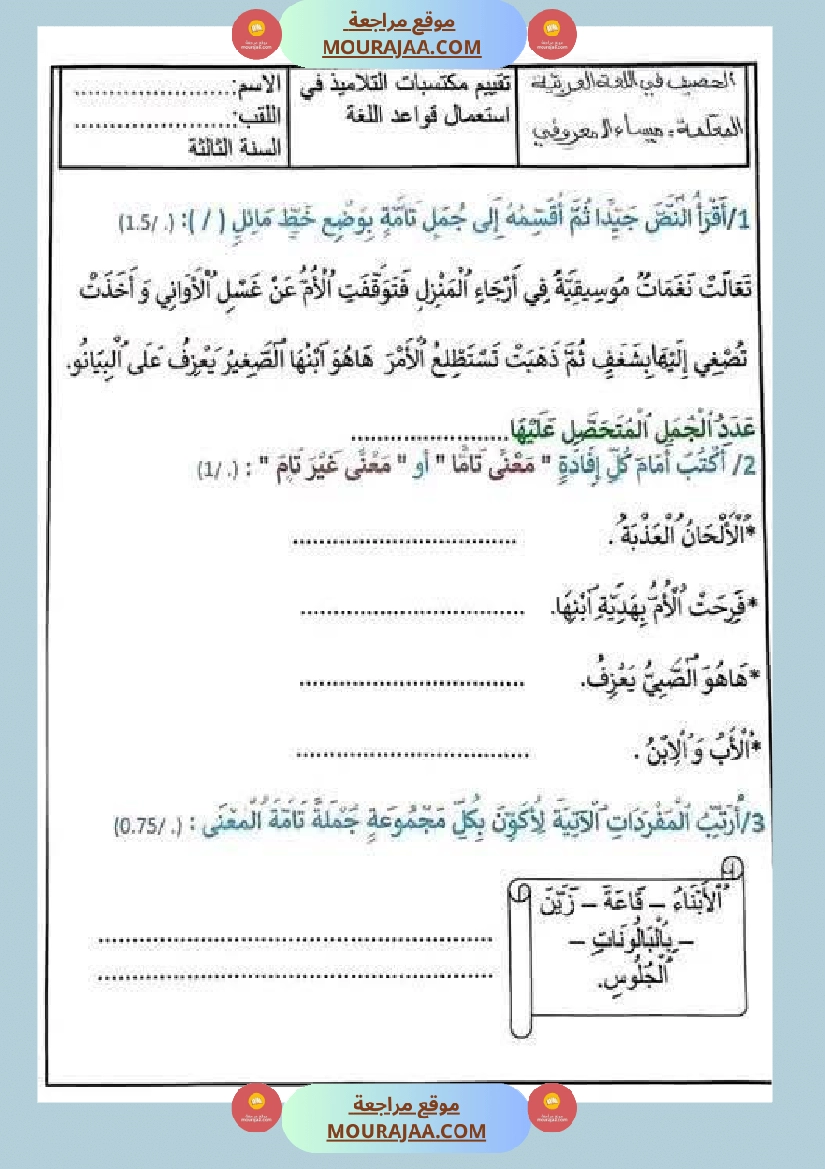 موقع مراجعة
MOURAJAA.COM
الحصيف في اللغة العربيّة
المعلّمة: ميساء المعروفي
تقييم مكتسبات التلاميذ في
استعمال قواعد اللغة
الاسم:........................
اللقب:........................
السنة الثالثة
1/أَقْرَأُ النَّصَّ جَيِّدًا ثُمَّ أُقَسِّمُهُ إِلَى جُمَلٍ تَامَّةٍ بِوَضْعِ خَطٍّ مَائِلٍ ( / ): (. /1.5)
تَعَالَتْ نَغَمَاتٌ مُوسِيقِيَّةٌ فِي أَرْجَاءِ الْمَنْزِلِ فَتَوَقَّفَتِ الْأُمُّ عَنْ غَسْلِ الْأَوَانِي وَ أَخَذَتْ
تُصْغِي إِلَيْهَا بِشَغَفٍ ثُمَّ ذَهَبَتْ تَسْتَطْلِعُ الْأَمْرَ هَاهُوَ ابْنُهَا الصَّغِيرُ يَعْزِفُ عَلَى الْبِيَانُو.
عَدَدُ الْجُمَلِ الْمُتَحَصَّلِ عَلَيْهَا........................
2/ أَكْتُبُ أَمَامَ كُلِّ إِفَادَةٍ " مَعْنًى تَامًّا " أو " مَعْنًى غَيْرَ تَامَ " : (. /1)
*الْأَلْحَانُ الْعَذْبَةُ . ..................................
*فَرِحَتْ الْأُمُّ بِهَدِيَّةِ ابْنِهَا. ..................................
*هَاهُوَ الصَّبِيُّ يَعْزِفُ. ..................................
*الْأَبُ وَ الِابْنُ . ..................................
3/أُرَتِّبُ الْمُفْرَدَاتِ الْآتِيَةَ لِأُكَوِّنَ بِكُلِّ مَجْمُوعَةٍ جُمْلَةً تَامَّةَ الْمَعْنَى : (. /0.75)
الْأَبْنَاءُ – قَاعَةَ – زَيَّنَ
– بِالْبَالُونَاتِ –
الْجُلُوسِ.
............................................................
............................................................
موقع مراجعة
MOURAJAA.COM